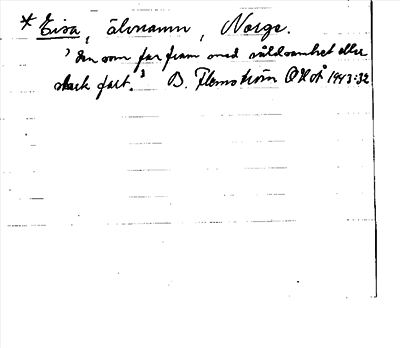 * Eisa, älvnamn, Norge.
'den som far fram med våldsamhet eller
stark fart.' B. Flemström OÅ 1943:32